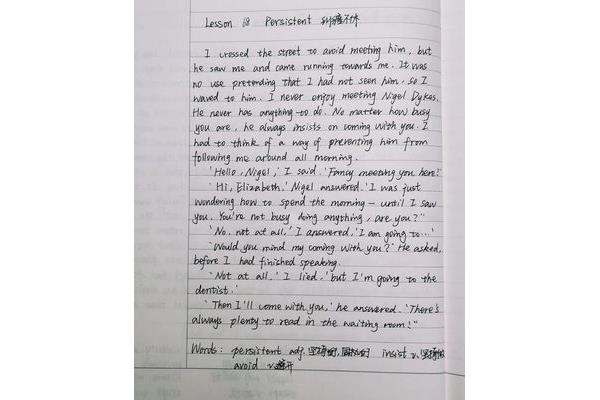 Lesson 18 Persistent 纠缠不休
I crossed the street to avoid meeting him, but
he saw me and came running towards me. It was
no use pretending that I had not seen him, so I
waved to him. I never enjoy meeting Nigel Dykes.
He never has anything to do. No matter how busy
you are, he always insists on coming with you. I
had to think of a way of preventing him from
following me around all morning.
'Hello, Nigel,' I said. 'Fancy meeting you here!'
'Hi, Elizabeth.' Nigel answered. 'I was just
wondering how to spend the morning — until I saw
you. You're not busy doing anything, are you?"
'No, not at all,' I answered, 'I am going to...'
'Would you mind my coming with you?' He asked,
before I had finished speaking.
'Not at all,' I lied, 'but I'm going to the
dentist.'
'Then I'll come with you,' he answered. 'There's
always plenty to read in the waiting room!"
Words: persistent adj. 坚持的, 固执的 insist v. 坚持
avoid v. 避开